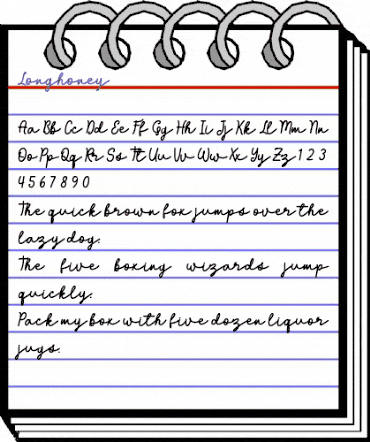 Longhoney
Aa Bb Cc Dd Ee Ff Gg Hh Ii Jj Kk Ll Mm Nn
Oo Pp Qq Rr Ss Tt Uu Vv Ww Xx Yy Zz 1 2 3
4 5 6 7 8 9 0
The quick brown fox jumps over the
lazy dog.
The five boxing wizards jump
quickly.
Pack my box with five dozen liquor
jugs.